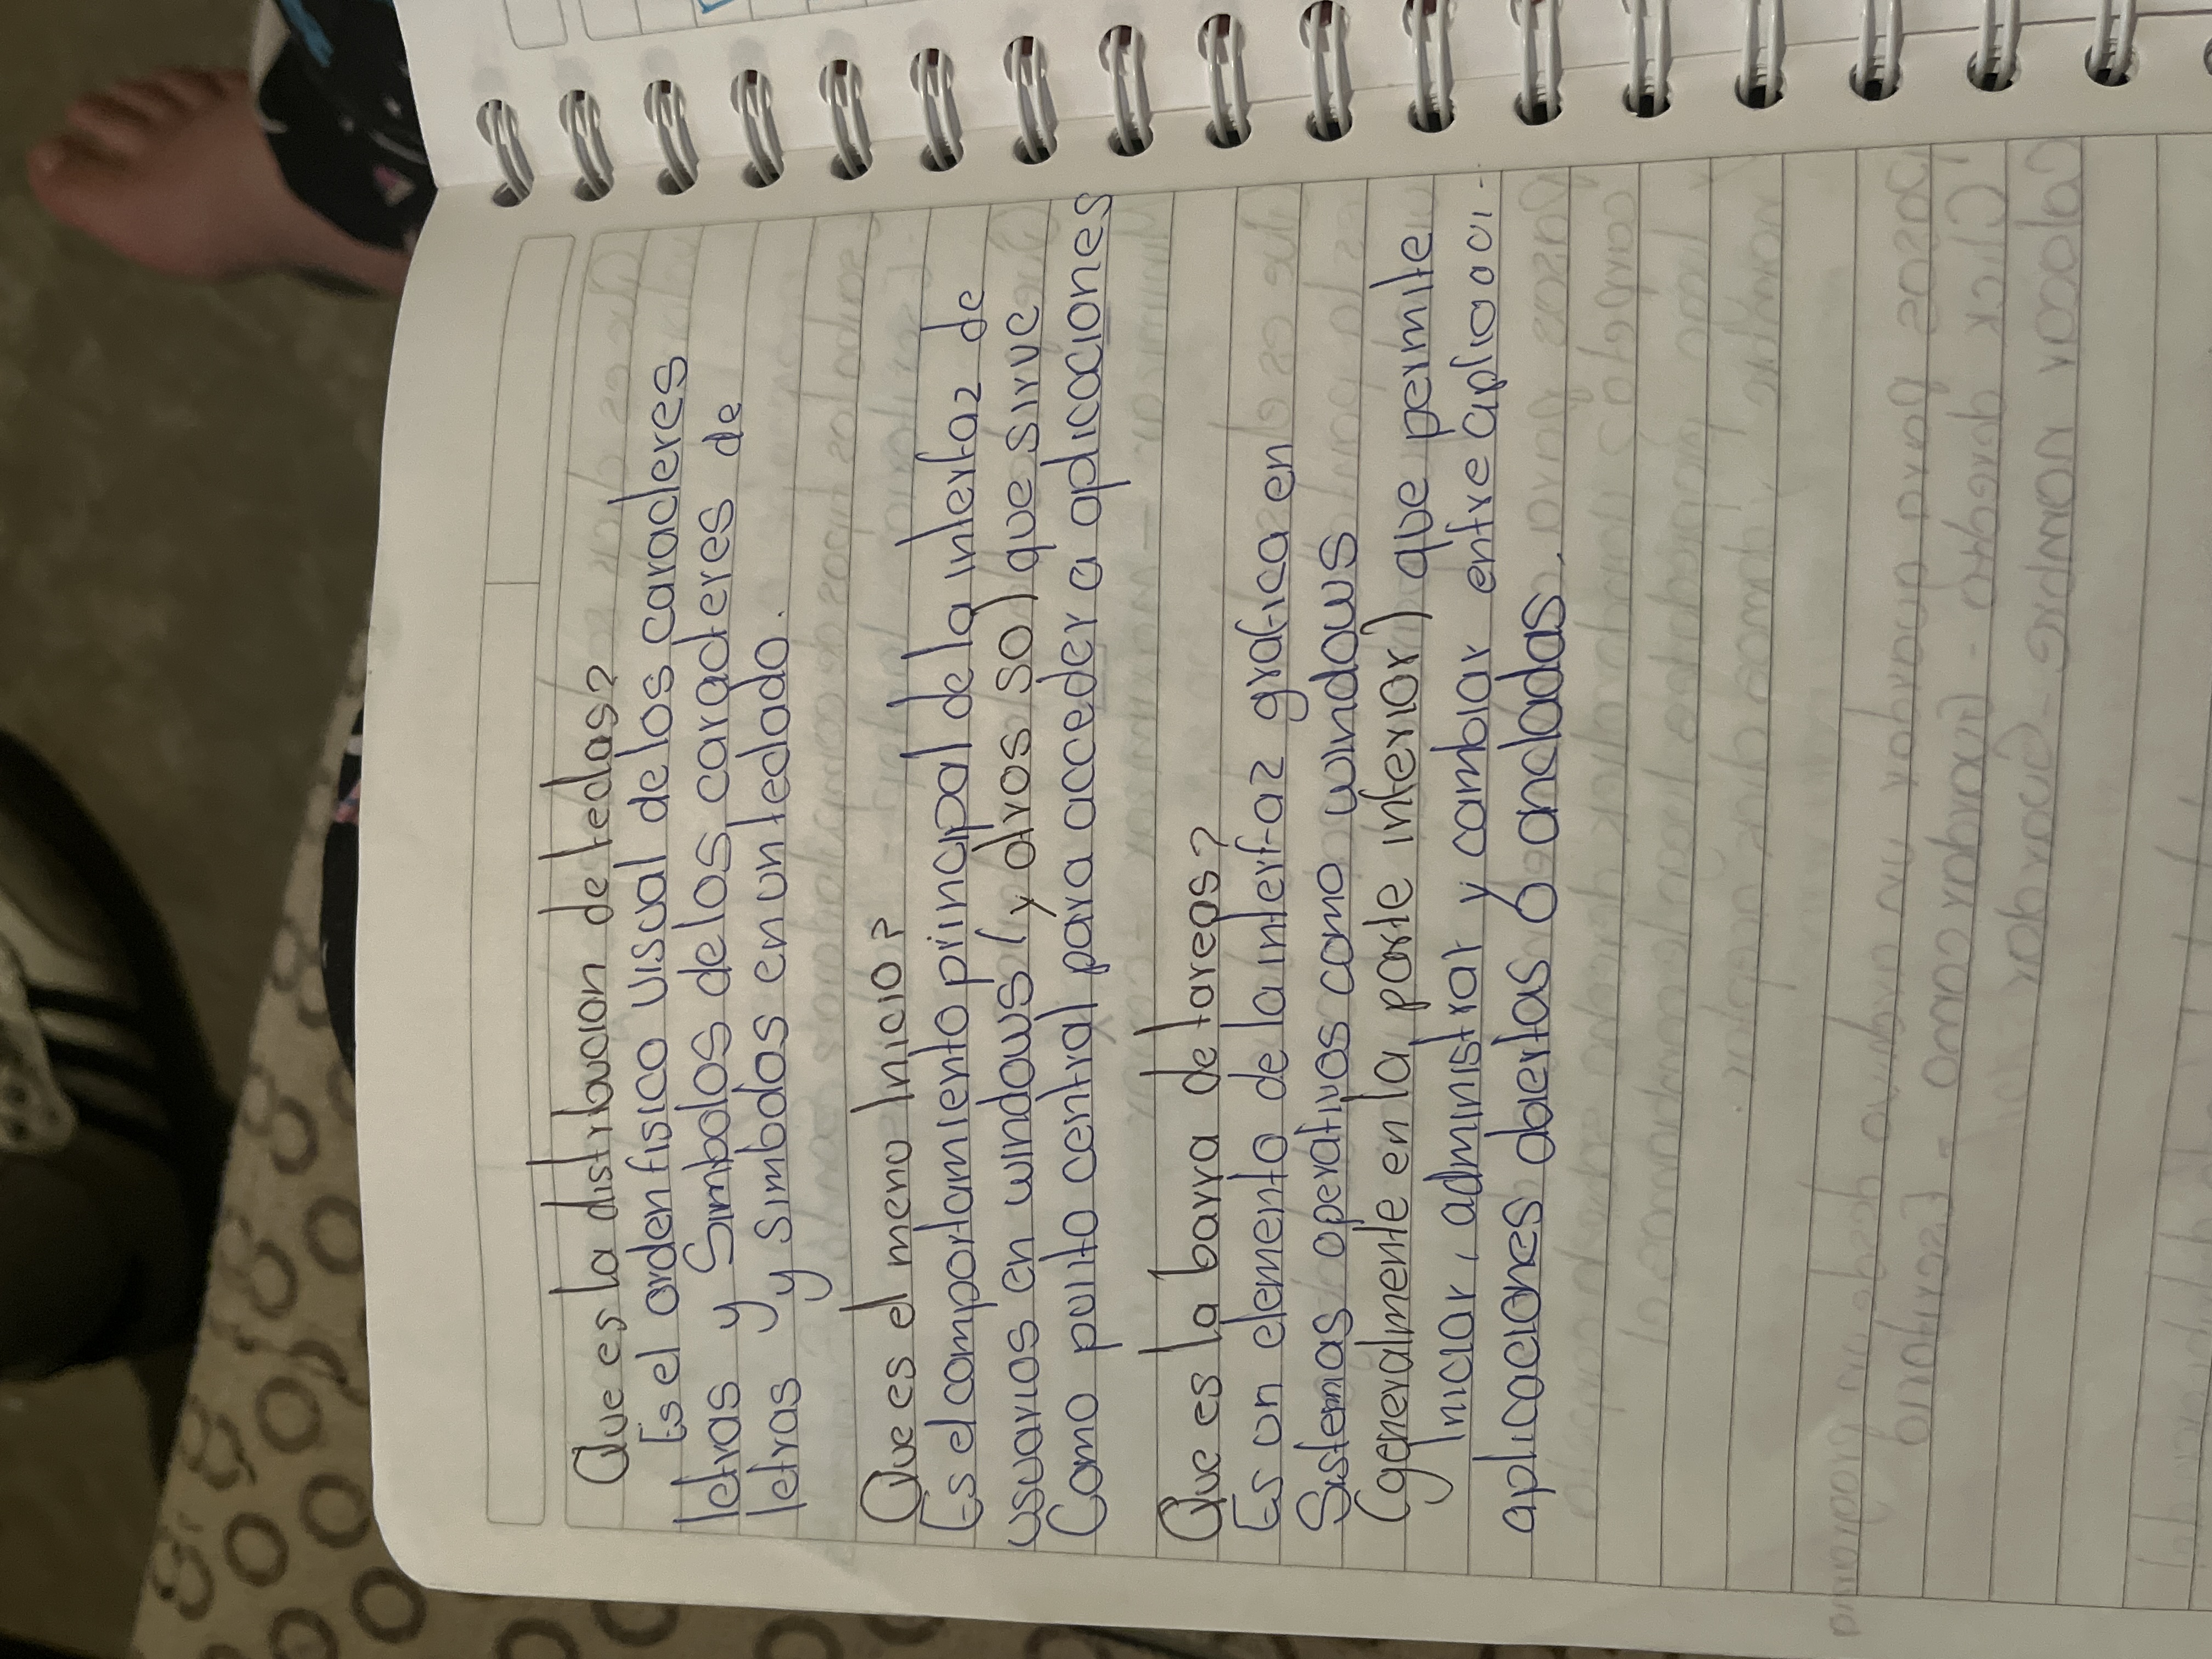 Que es la distribucion de teclas?
Es el orden fisico visual de los caracteres
letras y Simbolos de los caracteres de
letras y simbolos en un teclado.
Que es el menu Inicio?
Es el comportamiento principal de la interfaz de
usuarios en windows (y otros so) que sirve
Como punto central para acceder a aplicaciones
Que es la barra de tareas?
Es un elemento de la interfaz grafica en
Sistemas operativos como windows
(generalmente en la parte inferior) que permite
Iniciar, administrar y cambiar entre
aplicaciones abiertas o ancladas.